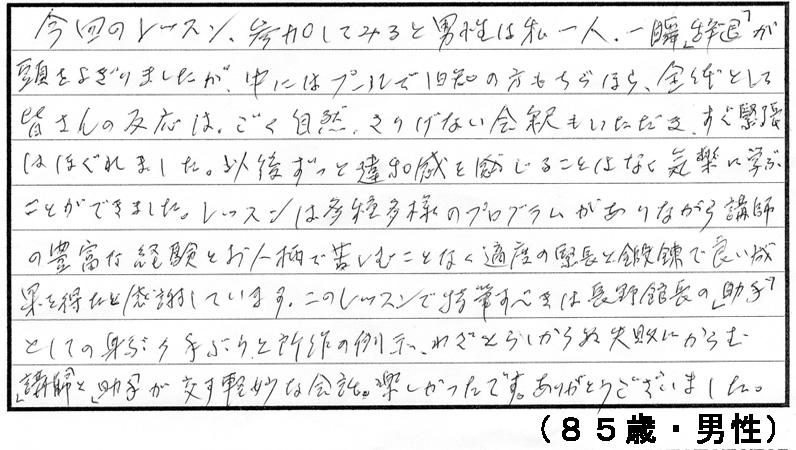 今回のレッスン、参加してみると男性は私一人、一瞬「辞退」が
頭をよぎりましたが、中にはプールで旧知の方もちらほら、全体として
皆さんの反応は、ごく自然、さりげない会釈もいただき、すぐ緊張
はほぐれました。以後ずっと違和感を感じることはなく気楽に学ぶ
ことができました。レッスンは多種多様のプログラムがありながら講師
の豊富な経験とお人柄で苦しむことなく適度の緊張と鍛錬で良い成
果を得たと感謝しています。このレッスンで特筆すべきは長野館長の「助手」
としての身ぶり手ぶりと所作の例示、わざとらしからぬ失敗にからむ
「講師」と「助手」が交す軽妙な会話。楽しかったです。ありがとうございました。
(85歳・男性)